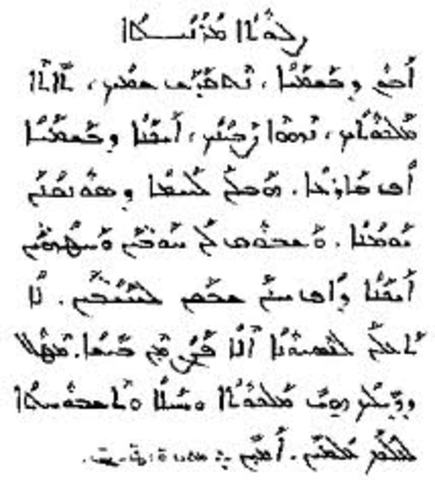 ܨܠܘܬܐ ܡܪܢܝܬܐ
ܐܒܘܢ ܕܒܫܡܝܐ، ܢܬܩܕܫ ܫܡܟ، ܬܐܬܐ
ܡܠܟܘܬܟ، ܢܗܘܐ ܨܒܝܢܟ، ܐܝܟܢܐ ܕܒܫܡܝܐ
ܐܦ ܒܐܪܥܐ. ܗܒ ܠܢ ܠܚܡܐ ܕܣܘܢܩܢܢ
ܝܘܡܢܐ. ܘܫܒܘܩ ܠܢ ܚܘܒܝܢ ܘܚܛܗܝܢ
ܐܝܟܢܐ ܕܐܦ ܚܢܢ ܫܒܩܢ ܠܚܝܒܝܢ. ܠܐ
ܬܥܠܢ ܠܢܣܝܘܢܐ ܐܠܐ ܦܨܢ ܡܢ ܒܝܫܐ. ܡܛܠ
ܕܕܝܠܟ ܗܝ ܡܠܟܘܬܐ ܘܚܝܠܐ ܘܬܫܒܘܚܬܐ
ܠܥܠܡ ܥܠܡܝܢ. ܐܡܝܢ